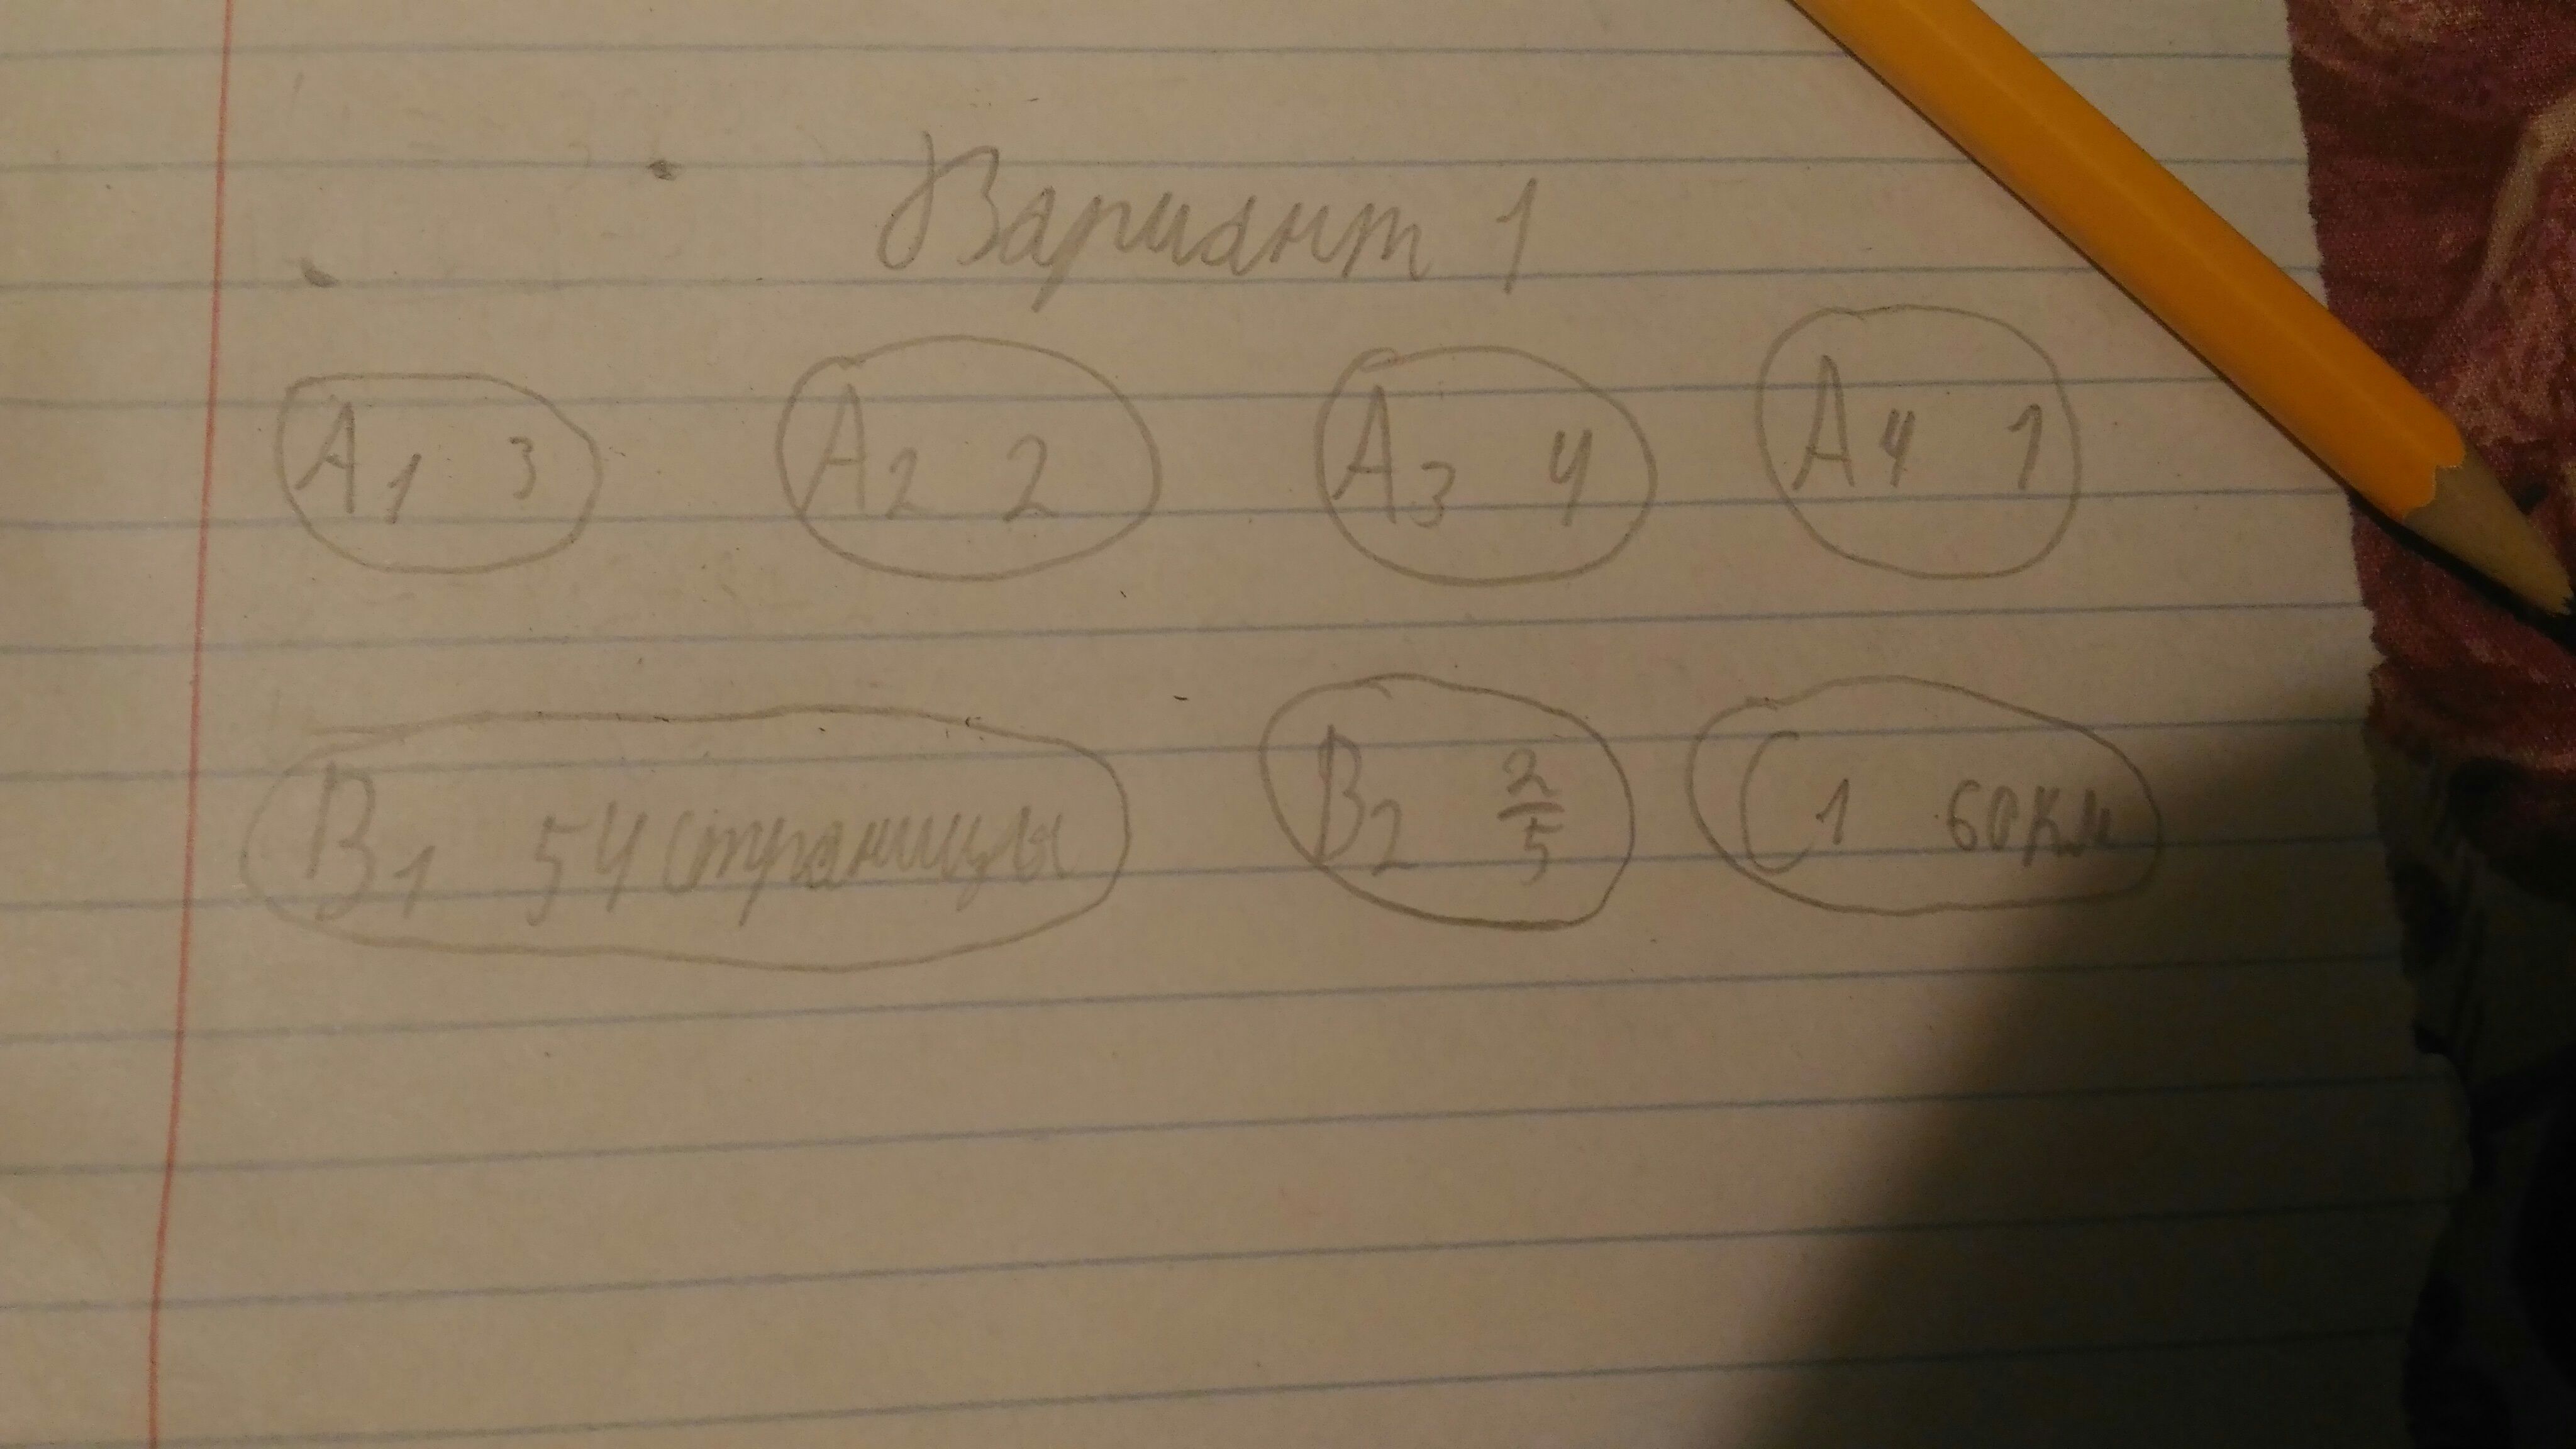 Вариант 1
A1 3 A2 2 A3 4 A4 1
B1 54 страницы B2 2/5 C1 60км